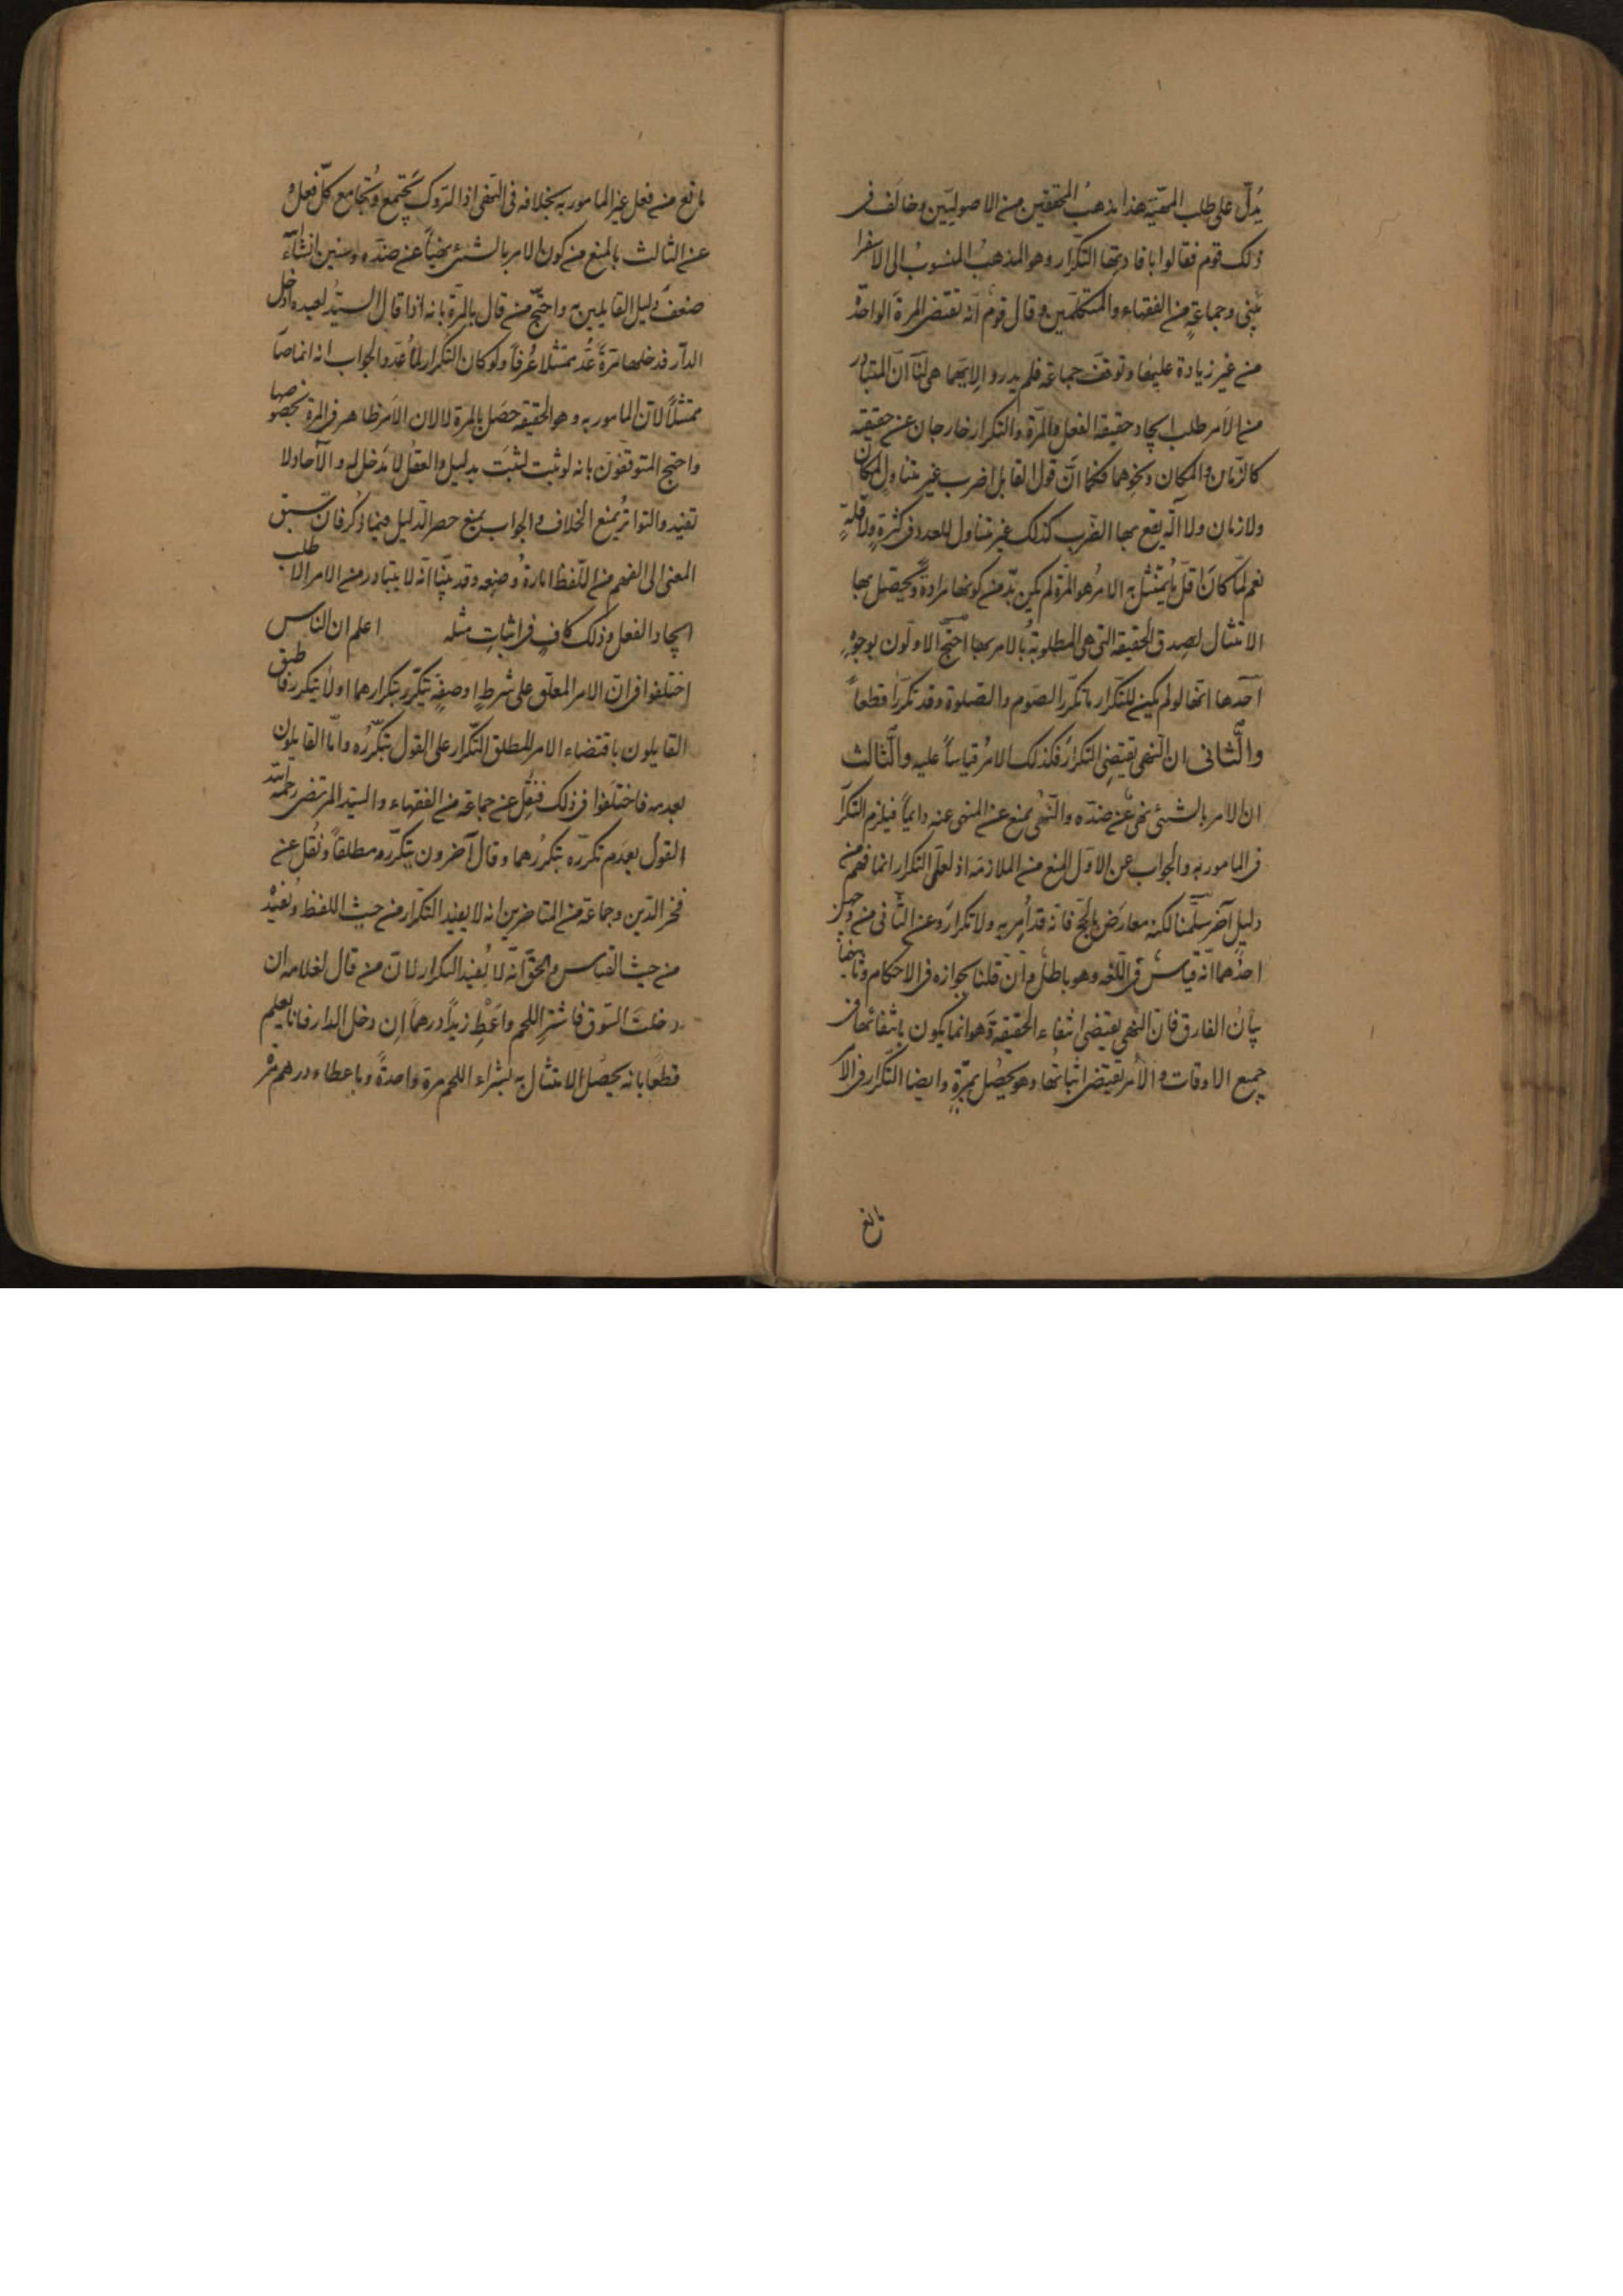 يدلّ على طلب المهيّة هذا مذهبُ المحققين من الاصوليّين وخالَف فى
ذلك قوم فقالوا بافادتها التكرار وهو المذهبُ المنسوبُ الى الاسفرا
يينى وجماعةٍ من الفقهاء والمتكلّمين وقال قوم انّه تقتضى المرةَ الواحدَة
من غير زيادة عليها وتوقف جماعة فلم يدروا لايّهما هى لنا انّ المتبادر
من الامر طلب ايجاد حقيقة الفعل والمرّة والتكرار خارجان عن حقيقته
كالزّمان والمكان ونحوهما فكما انّ قول القايل اضرب غير متناولٍ لمكان
ولا زمان ولا آلة يقع بها الضّرب كذلك غير متناول للعدد فى كثرةٍ ولا قلّةٍ
نعم لمّا كانَ اقلّ ما يُمتثلُ به الامرُ هو المرّة لم يكن بدّ من كونها مرادةً ويحصل بها
الامتثال لصِدق الحقيقة التى هى المطلوبةُ بالامر بها احتجّ الاولون بوجوُهٍ
احدها انّها لو لم يكن للتكرار ما تكرّر الصّوم والصّلوة وقد تكرّرا قطعاً
والثّانى ان النّهى يقتضِى التكرارَ فكذلك الامرُ قياساً عليه والثّالث
ان الامر بالشئ نهىٌ عن ضدّه والنّهى يمنع عن المنهى عنه دايماً فيلزم التكرّا
فى المامور به والجواب عن الاوّل المنع من الملازمة اذ لعلّ التكرار انما فهم من
دليلٍ آخر سلّمنا لكنه معارَض بالحجّ فانّه قد اُمِر به ولا تكرارَ وعن الثّانى من وجهين
احدُهما انّه قياسٌ فى اللّغه وهو باطلٌ وان قلنا بجوازه فى الاحكام وثانيهما
بيانُ الفارق فانّ النّهى يقتضى انتفاء الحقيقة وهو انما يكون بانتفائها فى
جميع الاوقات والامر يقتضى اثباتها وهو يحصُل بمرّةٍ وايضا التّكرار فى الا
مانع
مانع من فعل غير المامور به بخلافه فى النّهى اذ التّروك تجتمعُ وتُجامع كلّ فعل و
عن الثالث بالمنع من كون الامر بالشئ نهياً عن ضدّه وسنبين انشاء اللّه
ضعفَ دليل القايلين به واحتجّ من قال بالمرّة بانه اذا قال السيّدُ لعبده ادخل
الدّار فدخلها مرةً عُدّ ممتثلا عُرفاً ولو كان للتكرار لما عُدّ والجواب انه انما صا
ممتثلاً لانّ المامور به وهو الحقيقة حصَل بالمرة لا لان الامر ظاهر فى المرة بخصوصها
واحتج المتوقفون بانه لو ثبت لثبتَ بدليل والعقلُ لا مَدخل له والآحاد لا
تفيد والتواترُ يمنع الخلاف والجواب يمنع حصر الدّليل فيما ذُكر فانّ سبق
المعنى الى الفهم من اللّفظ امارةُ وضعه وقد بيّنا انّه لا يتبادر من الامر الا طلب
ايجاد الفعل وذلك كافٍ فى اثباتِ مثله اعلم ان النّاس
اختلفوا فى ان الامر المعلّق على شرطٍ او صفةٍ يتكرّر بتكرارهما او لا يتكرر فاطبق
القايلون باقتضاء الامر المطلق التّكرار على القول بتكرّره وامّا القايلون
بعدمه فاختلفوا فى ذلك فنقِل عن جماعة من الفقهاء والسّيّد المرتضى رحمه اللّه
القول بعدَم تكرّره بتكرُرهما وقال آخرون بتكرّره مطلقاً ونُقل عن
فخر الدّين وجماعة من المتاخرين انه لا يفيد التكرار من حيث اللفظ ويُفيده
من حيث القياس والحقّ انّه لا يُفيد التكرار لانّ من قال لغلامه ان
دخلتَ السّوق فاشترِ اللحم واَعْطِ زيداً درهماً اِن دخل الدار فانا نعلم
قطعًا بانه يحصُل الامتثال به بشراء اللحم مرة واحدةً وباعطاء درهم مرة